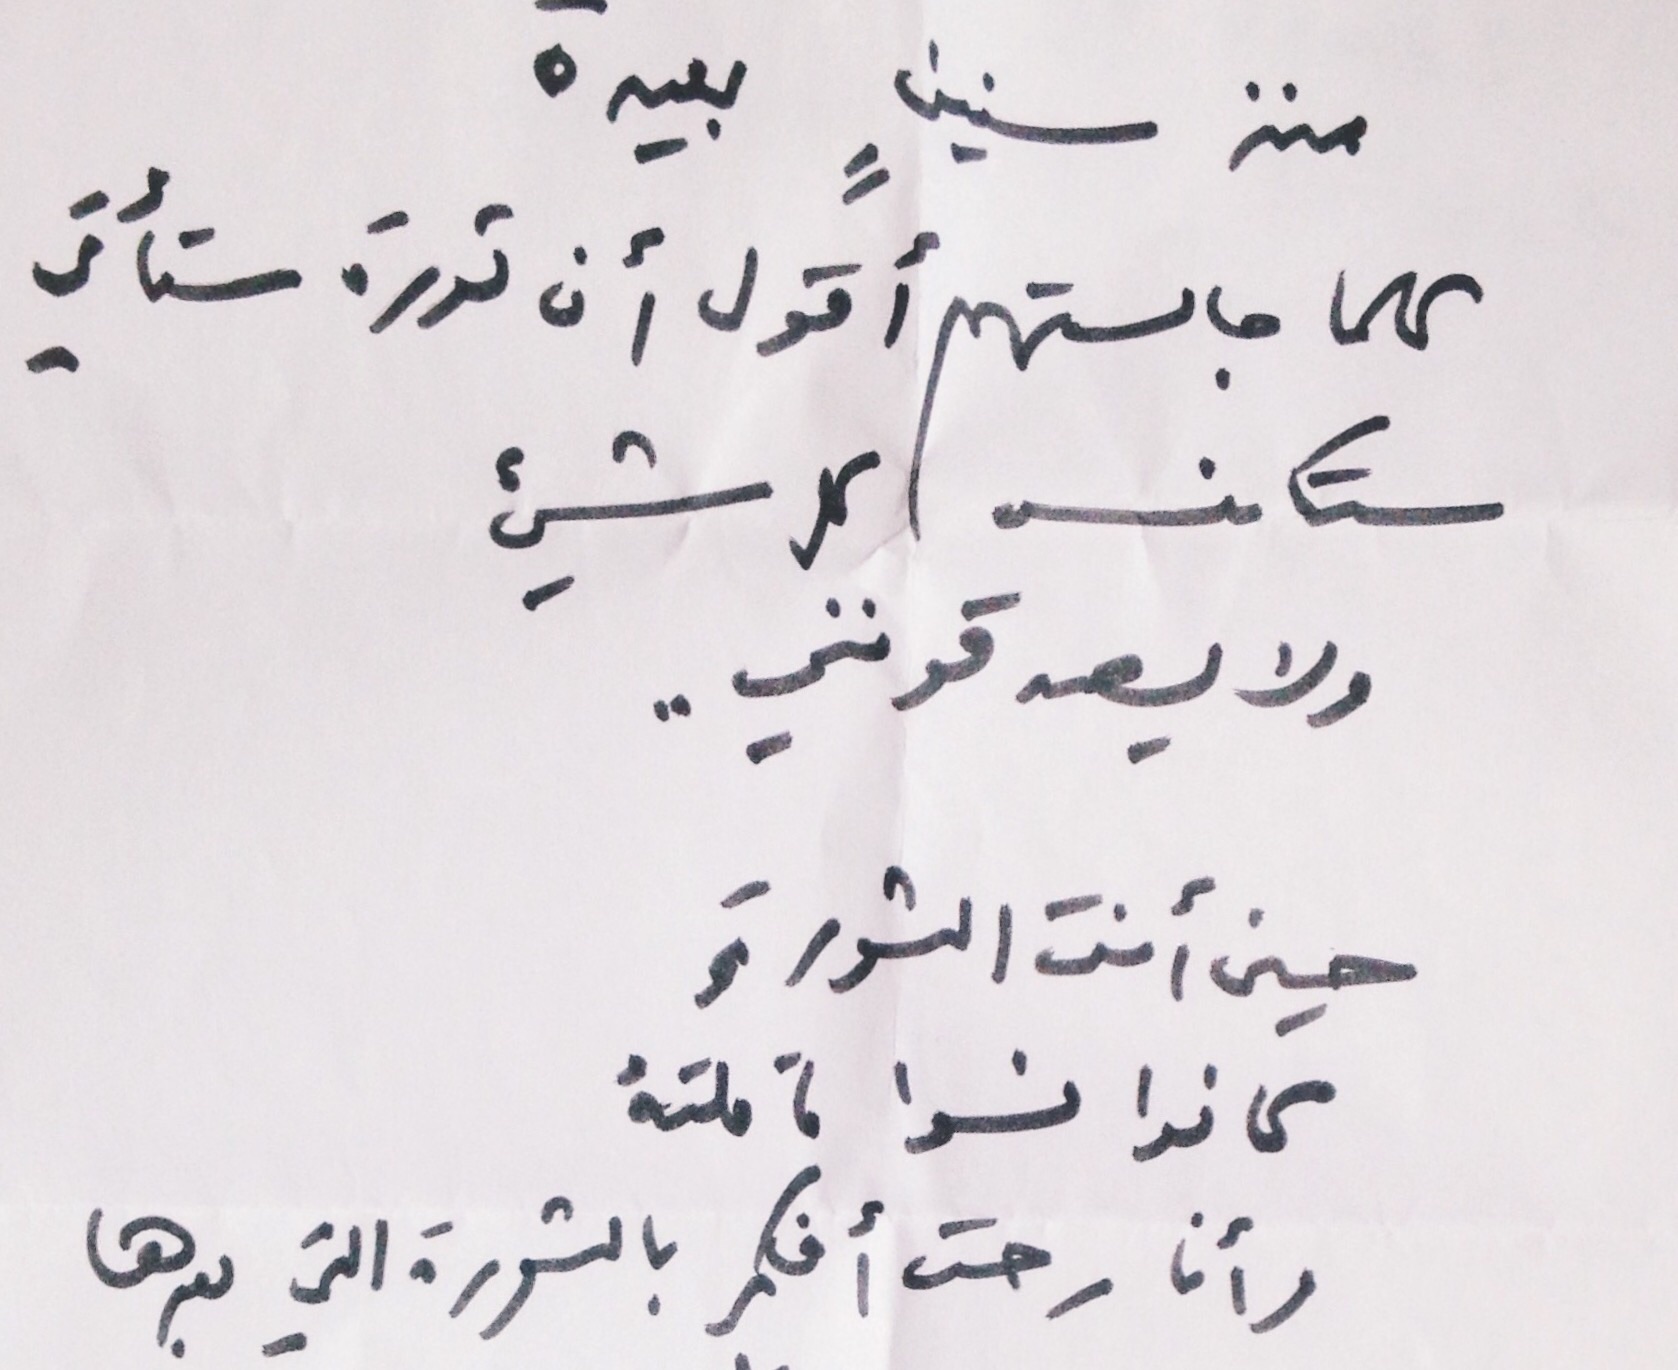 منذ سنينٍ بعيدة
كلما جالستهم أقول أن ثورة ستأتي
ستكنس كل شيئ
ولا يصدقونني ..
حين أتت الثورة
كانوا نسوا ما قلته
وأنا رحت أفكر بالثورة التي بعدها